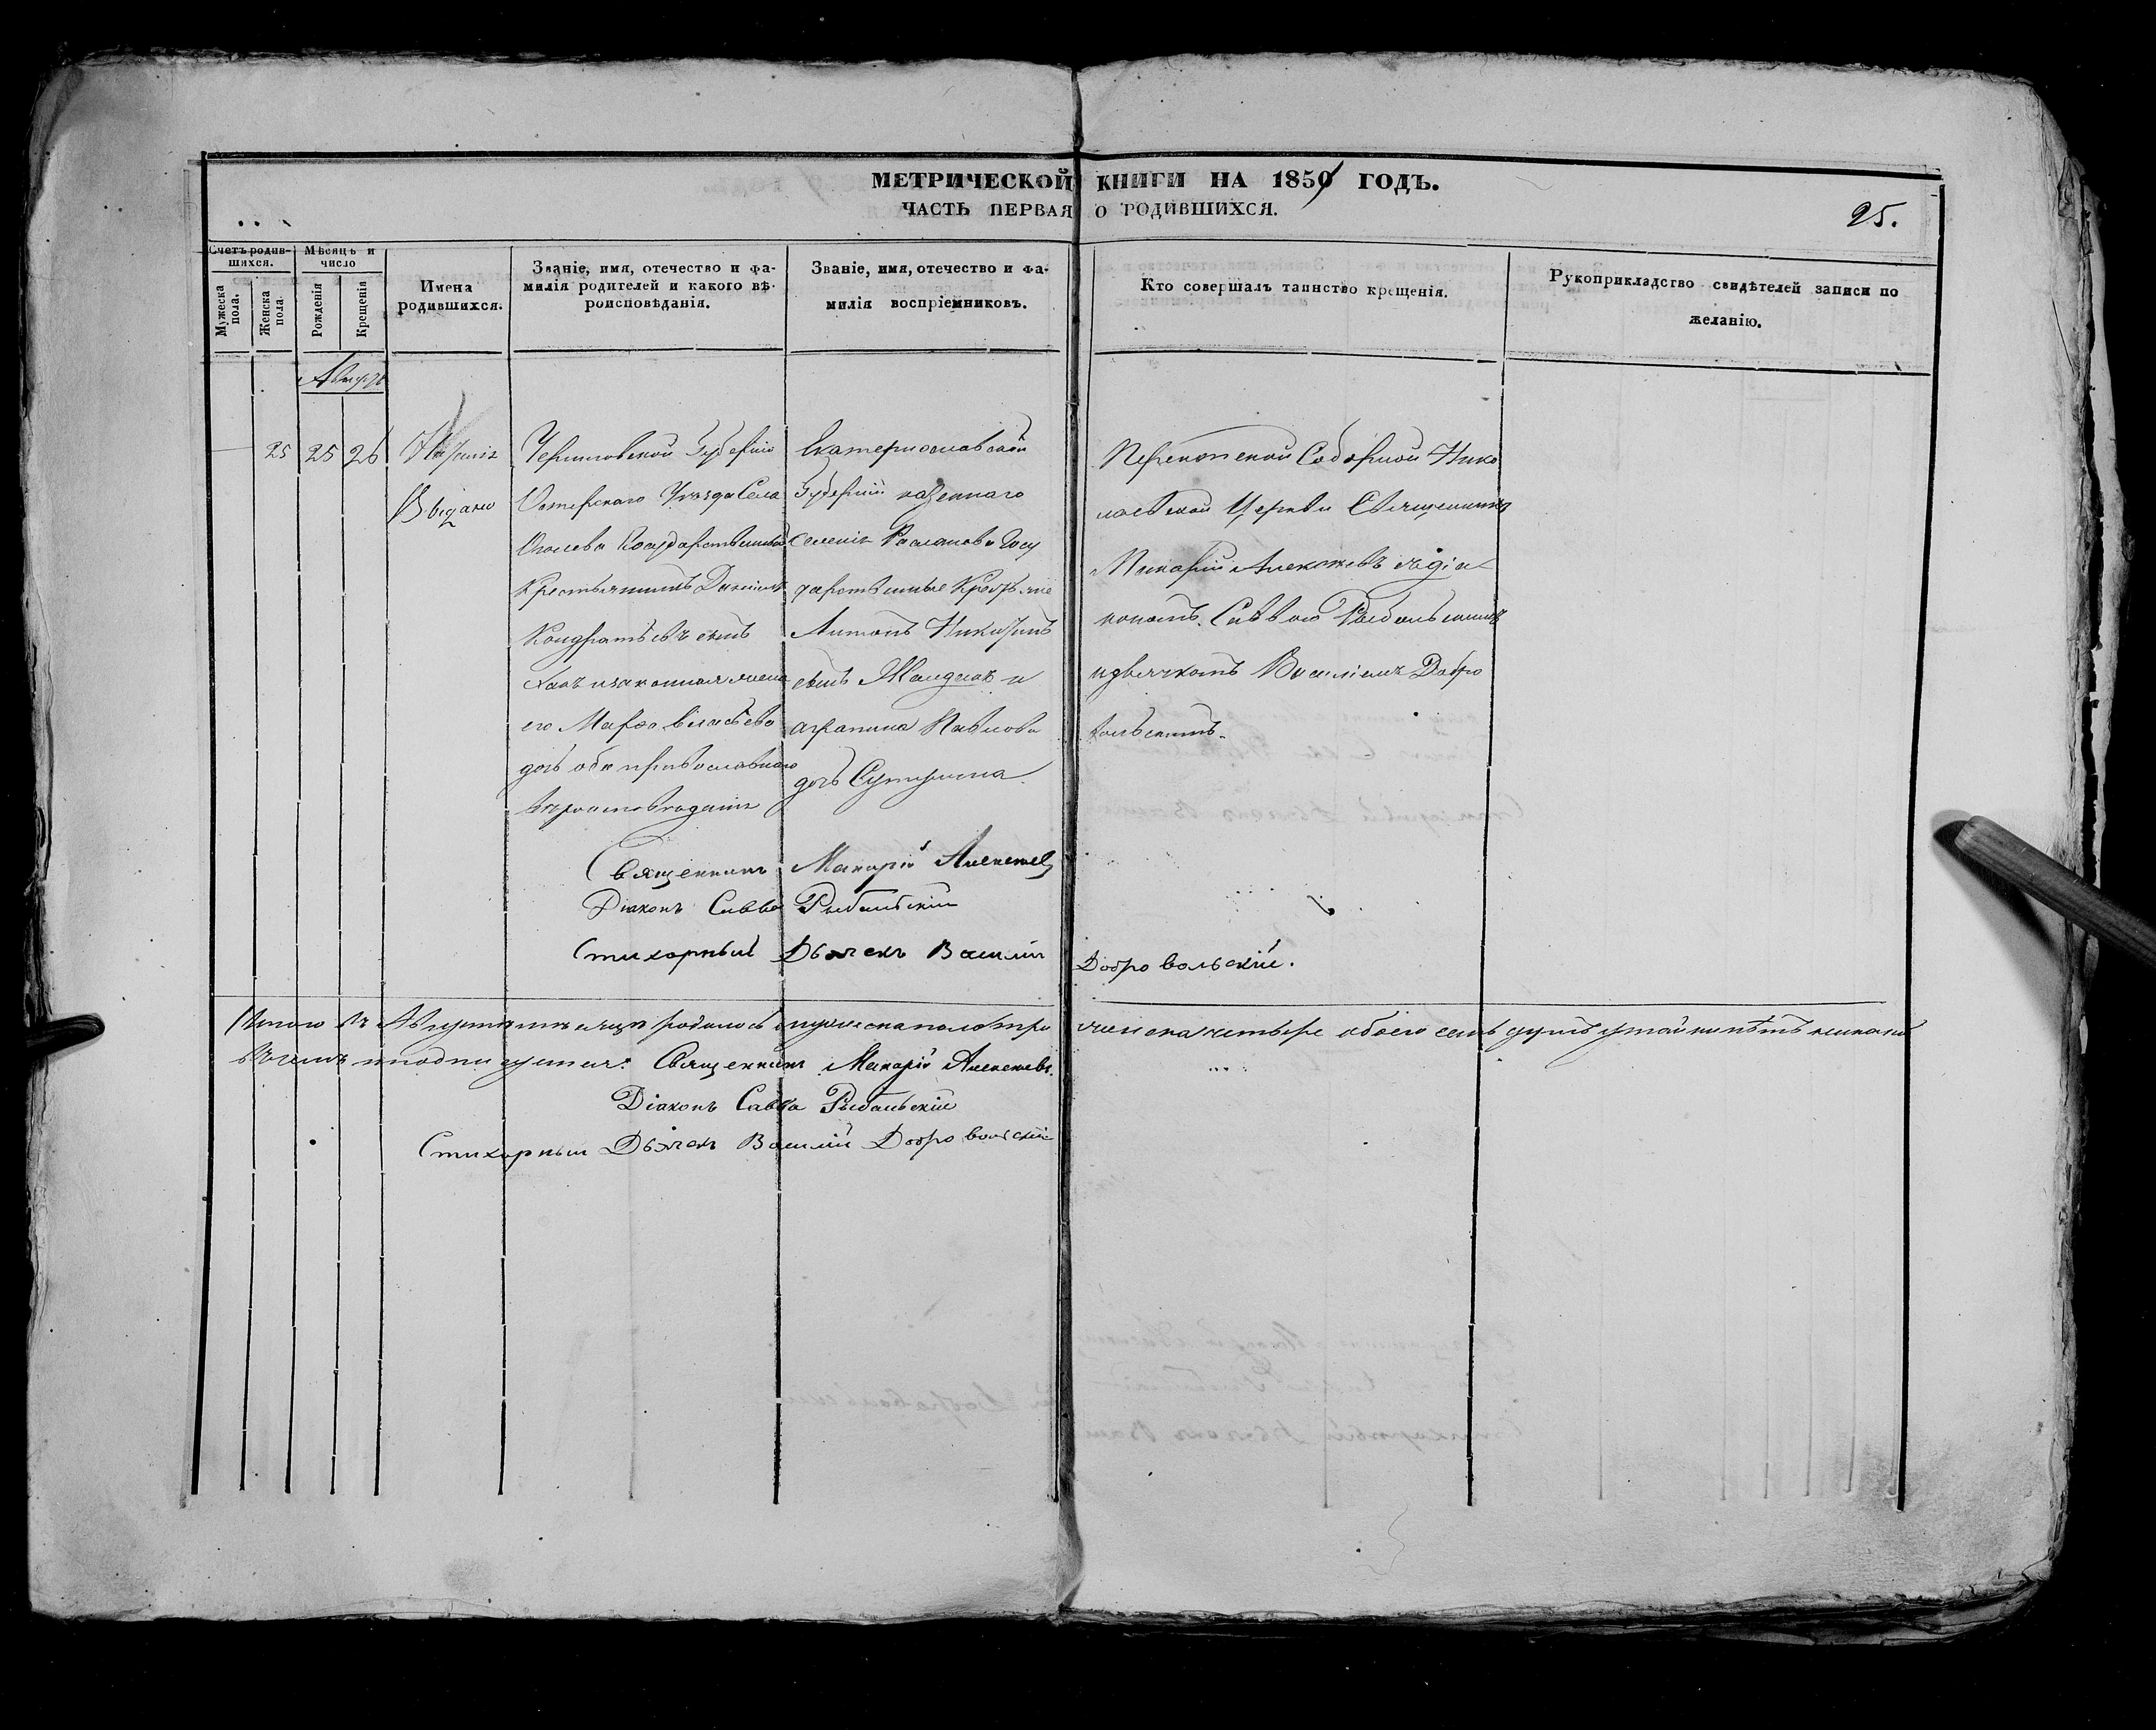 МЕТРИЧЕСКОЙ КНИГИ НА 1850 ГОДЪ.
ЧАСТЬ ПЕРВАЯ О РОДИВШИХСЯ.
25.
Счетъ родив-
шихся.
Мужеска
пола.
Женска
пола.
Мѣсяцъ и
число
Рожденія
Крещенія
Имена
родившихся.
Званіе, имя, отечество и фа-
милія родителей и какого вѣ-
роисповѣданія.
Званіе, имя, отечество и фа-
милія воспріемниковъ.
Кто совершалъ таинство крещенія.
Рукоприкладство свидѣтелей записи по
желанію.
Августъ
25 25 26
Наталія
Выдано
Черниговской Губерніи
Остерскаго Уѣзда Села
Государственный
Крестьянинъ Даніилъ
Кондратьевъ сынъ
и законная жена
его Марфа
дочь оба православнаго
вѣроисповѣданія
Екатеринославской
Губерніи казеннаго
селенія Госу
дарственные Крестьяне
Антонъ сынъ и
Агрипина Павлова
дочь
Перекопской Соборной Нико
лаевской Церкви Священникъ
Макарій Алексѣевъ съ діа
кономъ Саввою Рыбальскимъ
и дьячкомъ Василіемъ Добро
вольскимъ.
Священникъ Макарій Алексѣевъ
Діаконъ Савва Рыбальскій
Стихарный Дьячекъ Василій Добровольскій.
Итого въ Августѣ мѣсяцѣ родилось мужеска пола три женска четыре обоего семь душъ
въ чемъ и подписуемся: Священникъ Макарій Алексѣевъ.
Діаконъ Савва Рыбальскій
Стихарный Дьячекъ Василій Добровольскій